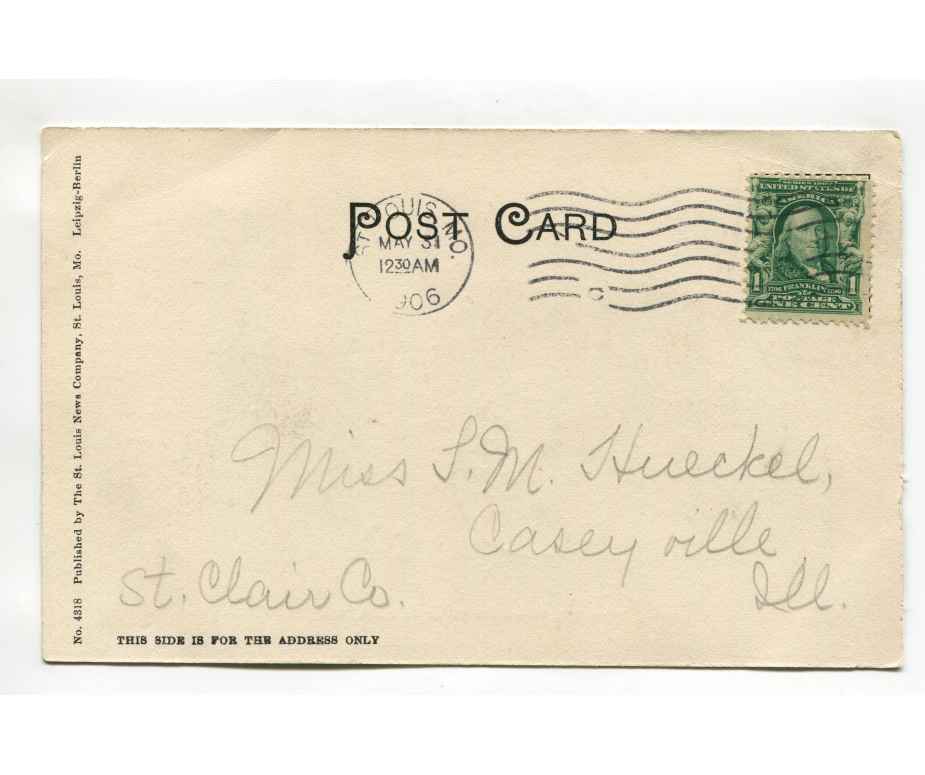 POST CARD
ST. LOUIS, MO.
MAY 31
12 30 AM
1906
UNITED STATES OF
AMERICA
1 FRANKLIN 1
POSTAGE
ONE CENT
Miss S. M. Hueckel,
Caseyville
St. Clair Co. Ill.
THIS SIDE IS FOR THE ADDRESS ONLY
No. 4318 Published by The St. Louis News Company, St. Louis, Mo. Leipzig-Berlin